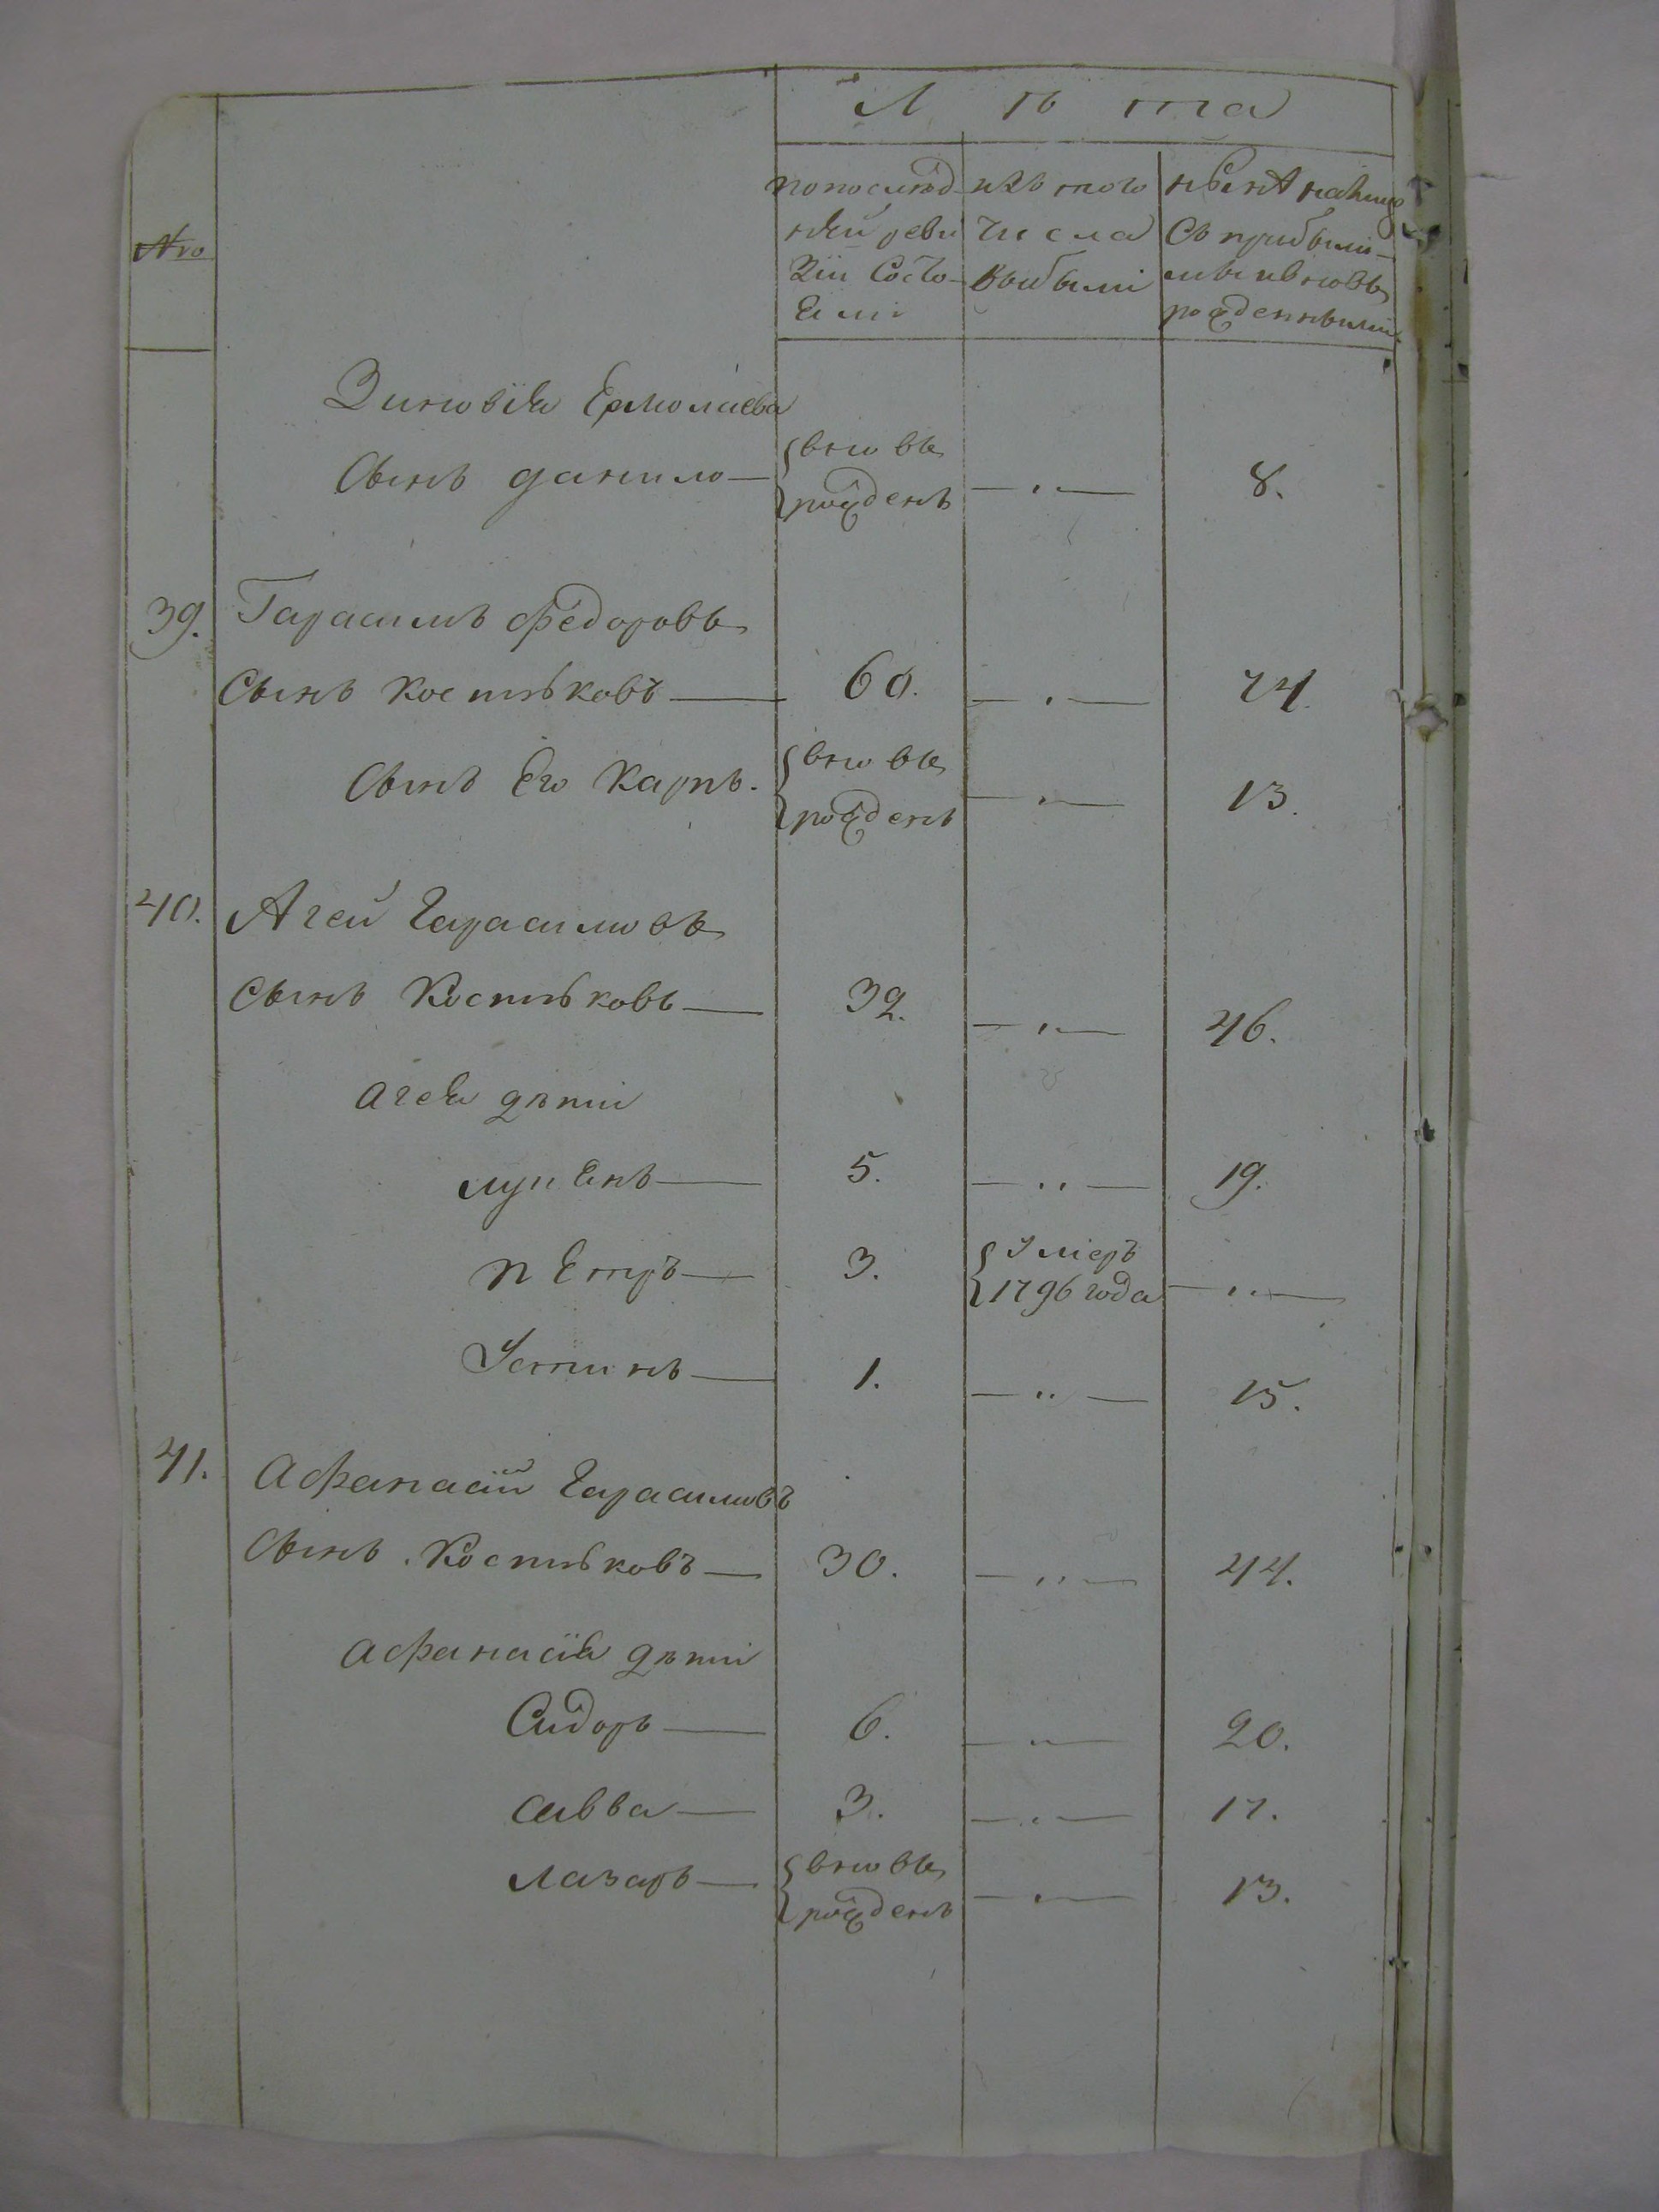 Лѣта
№
по послѣд
ней реви
зiи Состо
Ели
изъ того
числа
выбыли
нынѣ налицо
Съ прибылы-
ми и вновь
рожденными
Зиновiя Ермолаева
Сынъ данило — вновь рожденъ — „ — 8.
39. Гарасимъ федоровъ
Сынъ Костѣковъ — 60. — „ — 74.
Сынъ Его Карпъ. вновь рожденъ — „ — 13.
40. Агей Гарасимовъ
Сынъ Костѣковъ — 32. — „ — 46.
агея дѣти
лупЕнъ — 5. — „ — 19.
пЕтръ — 3. Умеръ 1796 года — „ —
Устинъ — 1. — „ — 15.
41. Афанасiй Гарасимовъ
Сынъ Костѣковъ — 30. — „ — 44.
афанасiя дѣти
Сидоръ — 6. — „ — 20.
савва — 3. — „ — 17.
лазарь — вновь рожденъ — „ — 13.